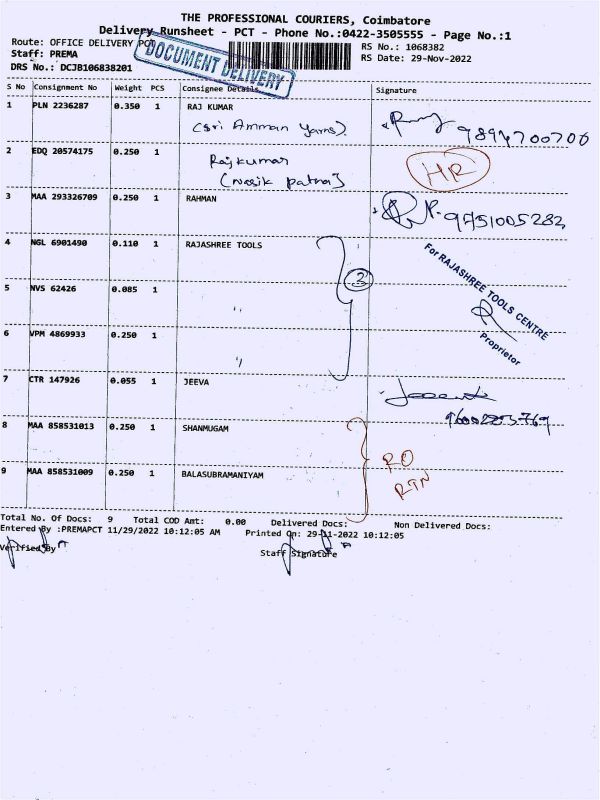 THE PROFESSIONAL COURIERS, Coimbatore
Delivery Runsheet - PCT - Phone No.:0422-3505555 - Page No.:1
Route: OFFICE DELIVERY PCT
RS No.: 1068382
Staff: PREMA
RS Date: 29-Nov-2022
DRS No.: DCJB106838201
DOCUMENT DELIVERY
S No Consignment No Weight PCS Consignee Details Signature
1 PLN 2236287 0.350 1 RAJ KUMAR
(Sri Amman Yarns)
2 EDQ 20574175 0.250 1 Rajkumar
(Nasik patna)
HR
3 MAA 293326709 0.250 1 RAHMAN
9751005282
4 NGL 6901490 0.110 1 RAJASHREE TOOLS
3
For RAJASHREE TOOLS CENTRE
Proprietor
5 NVS 62426 0.085 1 "
6 VPM 4869933 0.250 1 "
7 CTR 147926 0.055 1 JEEVA
8 MAA 858531013 0.250 1 SHANMUGAM
RO
RTN
9 MAA 858531009 0.250 1 BALASUBRAMANIYAM
Total No. Of Docs: 9 Total COD Amt: 0.00 Delivered Docs: Non Delivered Docs:
Entered By :PREMAPCT 11/29/2022 10:12:05 AM Printed On: 29-11-2022 10:12:05
Verified By
Staff Signature